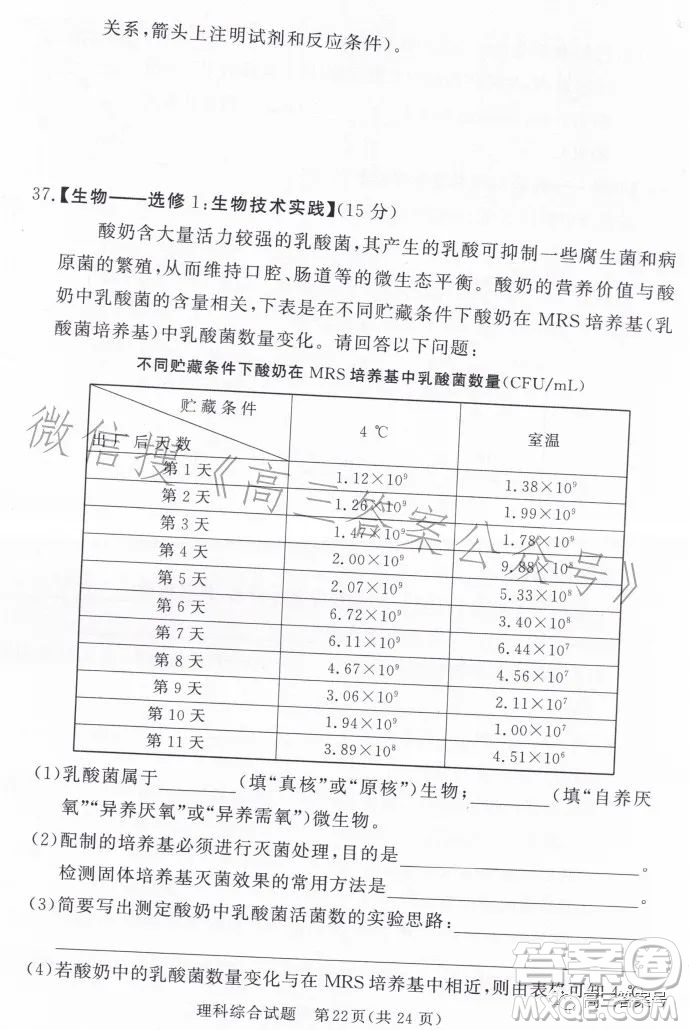 关系,箭头上注明试剂和反应条件)。
37.【生物——选修1:生物技术实践】(15分)
酸奶含大量活力较强的乳酸菌,其产生的乳酸可抑制一些腐生菌和病
原菌的繁殖,从而维持口腔、肠道等的微生态平衡。酸奶的营养价值与酸
奶中乳酸菌的含量相关,下表是在不同贮藏条件下酸奶在 MRS 培养基(乳
酸菌培养基)中乳酸菌数量变化。请回答以下问题:
不同贮藏条件下酸奶在 MRS 培养基中乳酸菌数量(CFU/mL)
贮藏条件
出厂后天数 4℃ 室温
第1天 1.12×10⁹ 1.38×10⁹
第2天 1.26×10⁹ 1.99×10⁹
第3天 1.47×10⁹ 1.78×10⁹
第4天 2.00×10⁹ 9.88×10⁸
第5天 2.07×10⁹ 5.33×10⁸
第6天 6.72×10⁹ 3.40×10⁸
第7天 6.11×10⁹ 6.44×10⁷
第8天 4.67×10⁹ 4.56×10⁷
第9天 3.06×10⁹ 2.51×10⁷
第10天 1.94×10⁹ 1.00×10⁷
第11天 3.89×10⁸ 4.51×10⁶
微信搜《高三答案公众号》
(1)乳酸菌属于________(填“真核”或“原核”)生物;________(填“自养厌
氧”“异养厌氧”或“异养需氧”)微生物。
(2)配制的培养基必须进行灭菌处理,目的是________。
检测固体培养基灭菌效果的常用方法是________。
(3)简要写出测定酸奶中乳酸菌活菌数的实验思路:________
________。
(4)若酸奶中的乳酸菌数量变化与在 MRS 培养基中相近,则由表格可知 4℃
理科综合试题 第22页(共24页)
答案圈
高三答案号